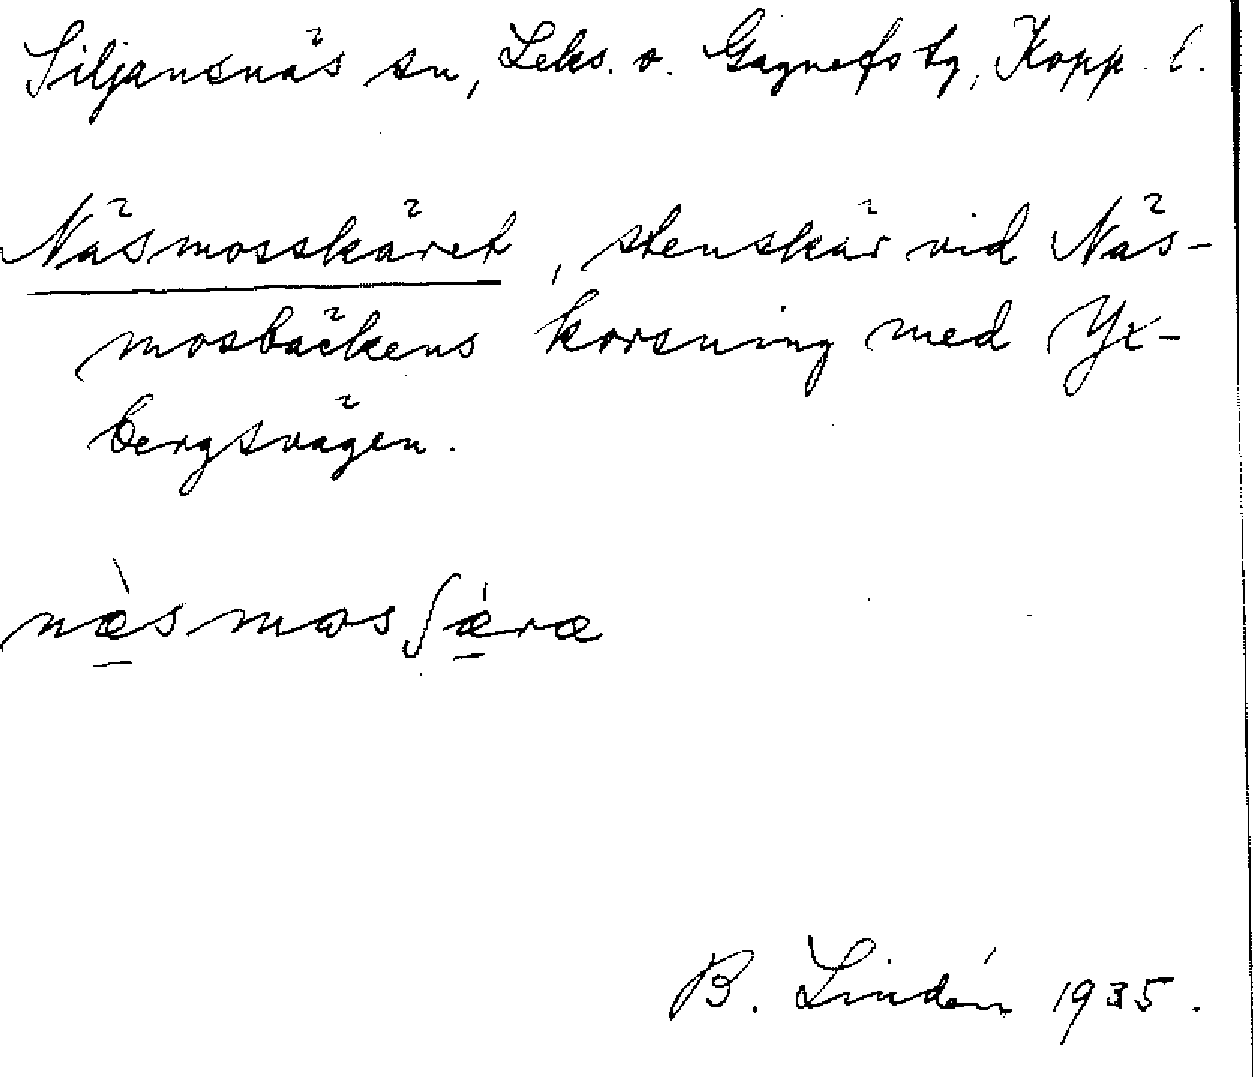 Siljansnäs sn, Leks. o. Gagnefs tg, Kopp. l.
Näsmosskäret, stenskär vid Näs-
mosbäckens korsning med Yx-
bergsvägen.
næ̀smosʃǽræ
B. Lindén 1935.